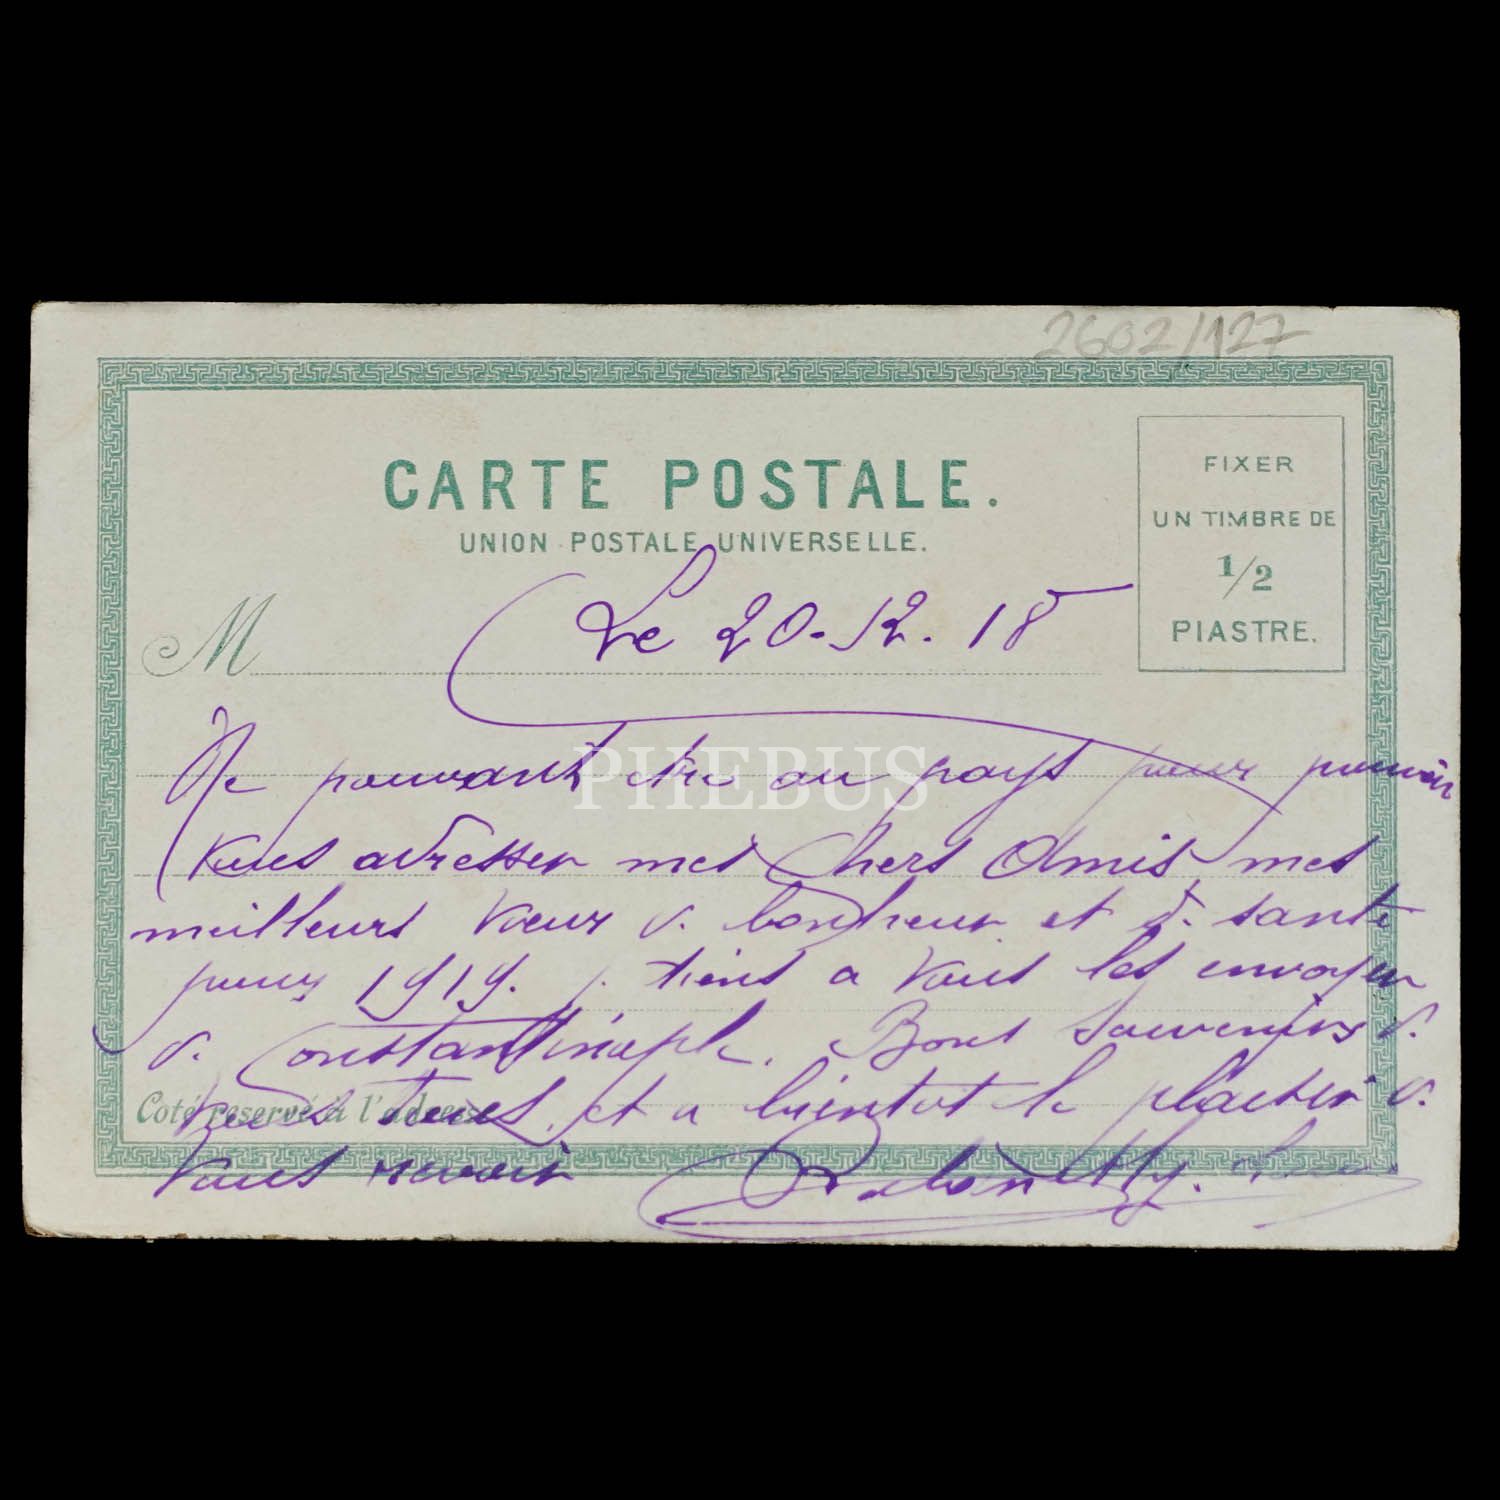 2602/127
CARTE POSTALE.
UNION POSTALE UNIVERSELLE.
FIXER
UN TIMBRE DE
1/2
PIASTRE.
M
Le 20-12. 18
Ne pouvant etre au pays pour pouvoir
vous adresser mes Chers Amis, mes
meilleurs voeux d. bonheur et d. santé
pour 1919. j. tiens a vous les envoyer
d. Constantinople. Bons souvenirs d.
vous tous, et a bientot le plaisir d.
Coté reservé à l'adresse
vous revoir
PHEBUS